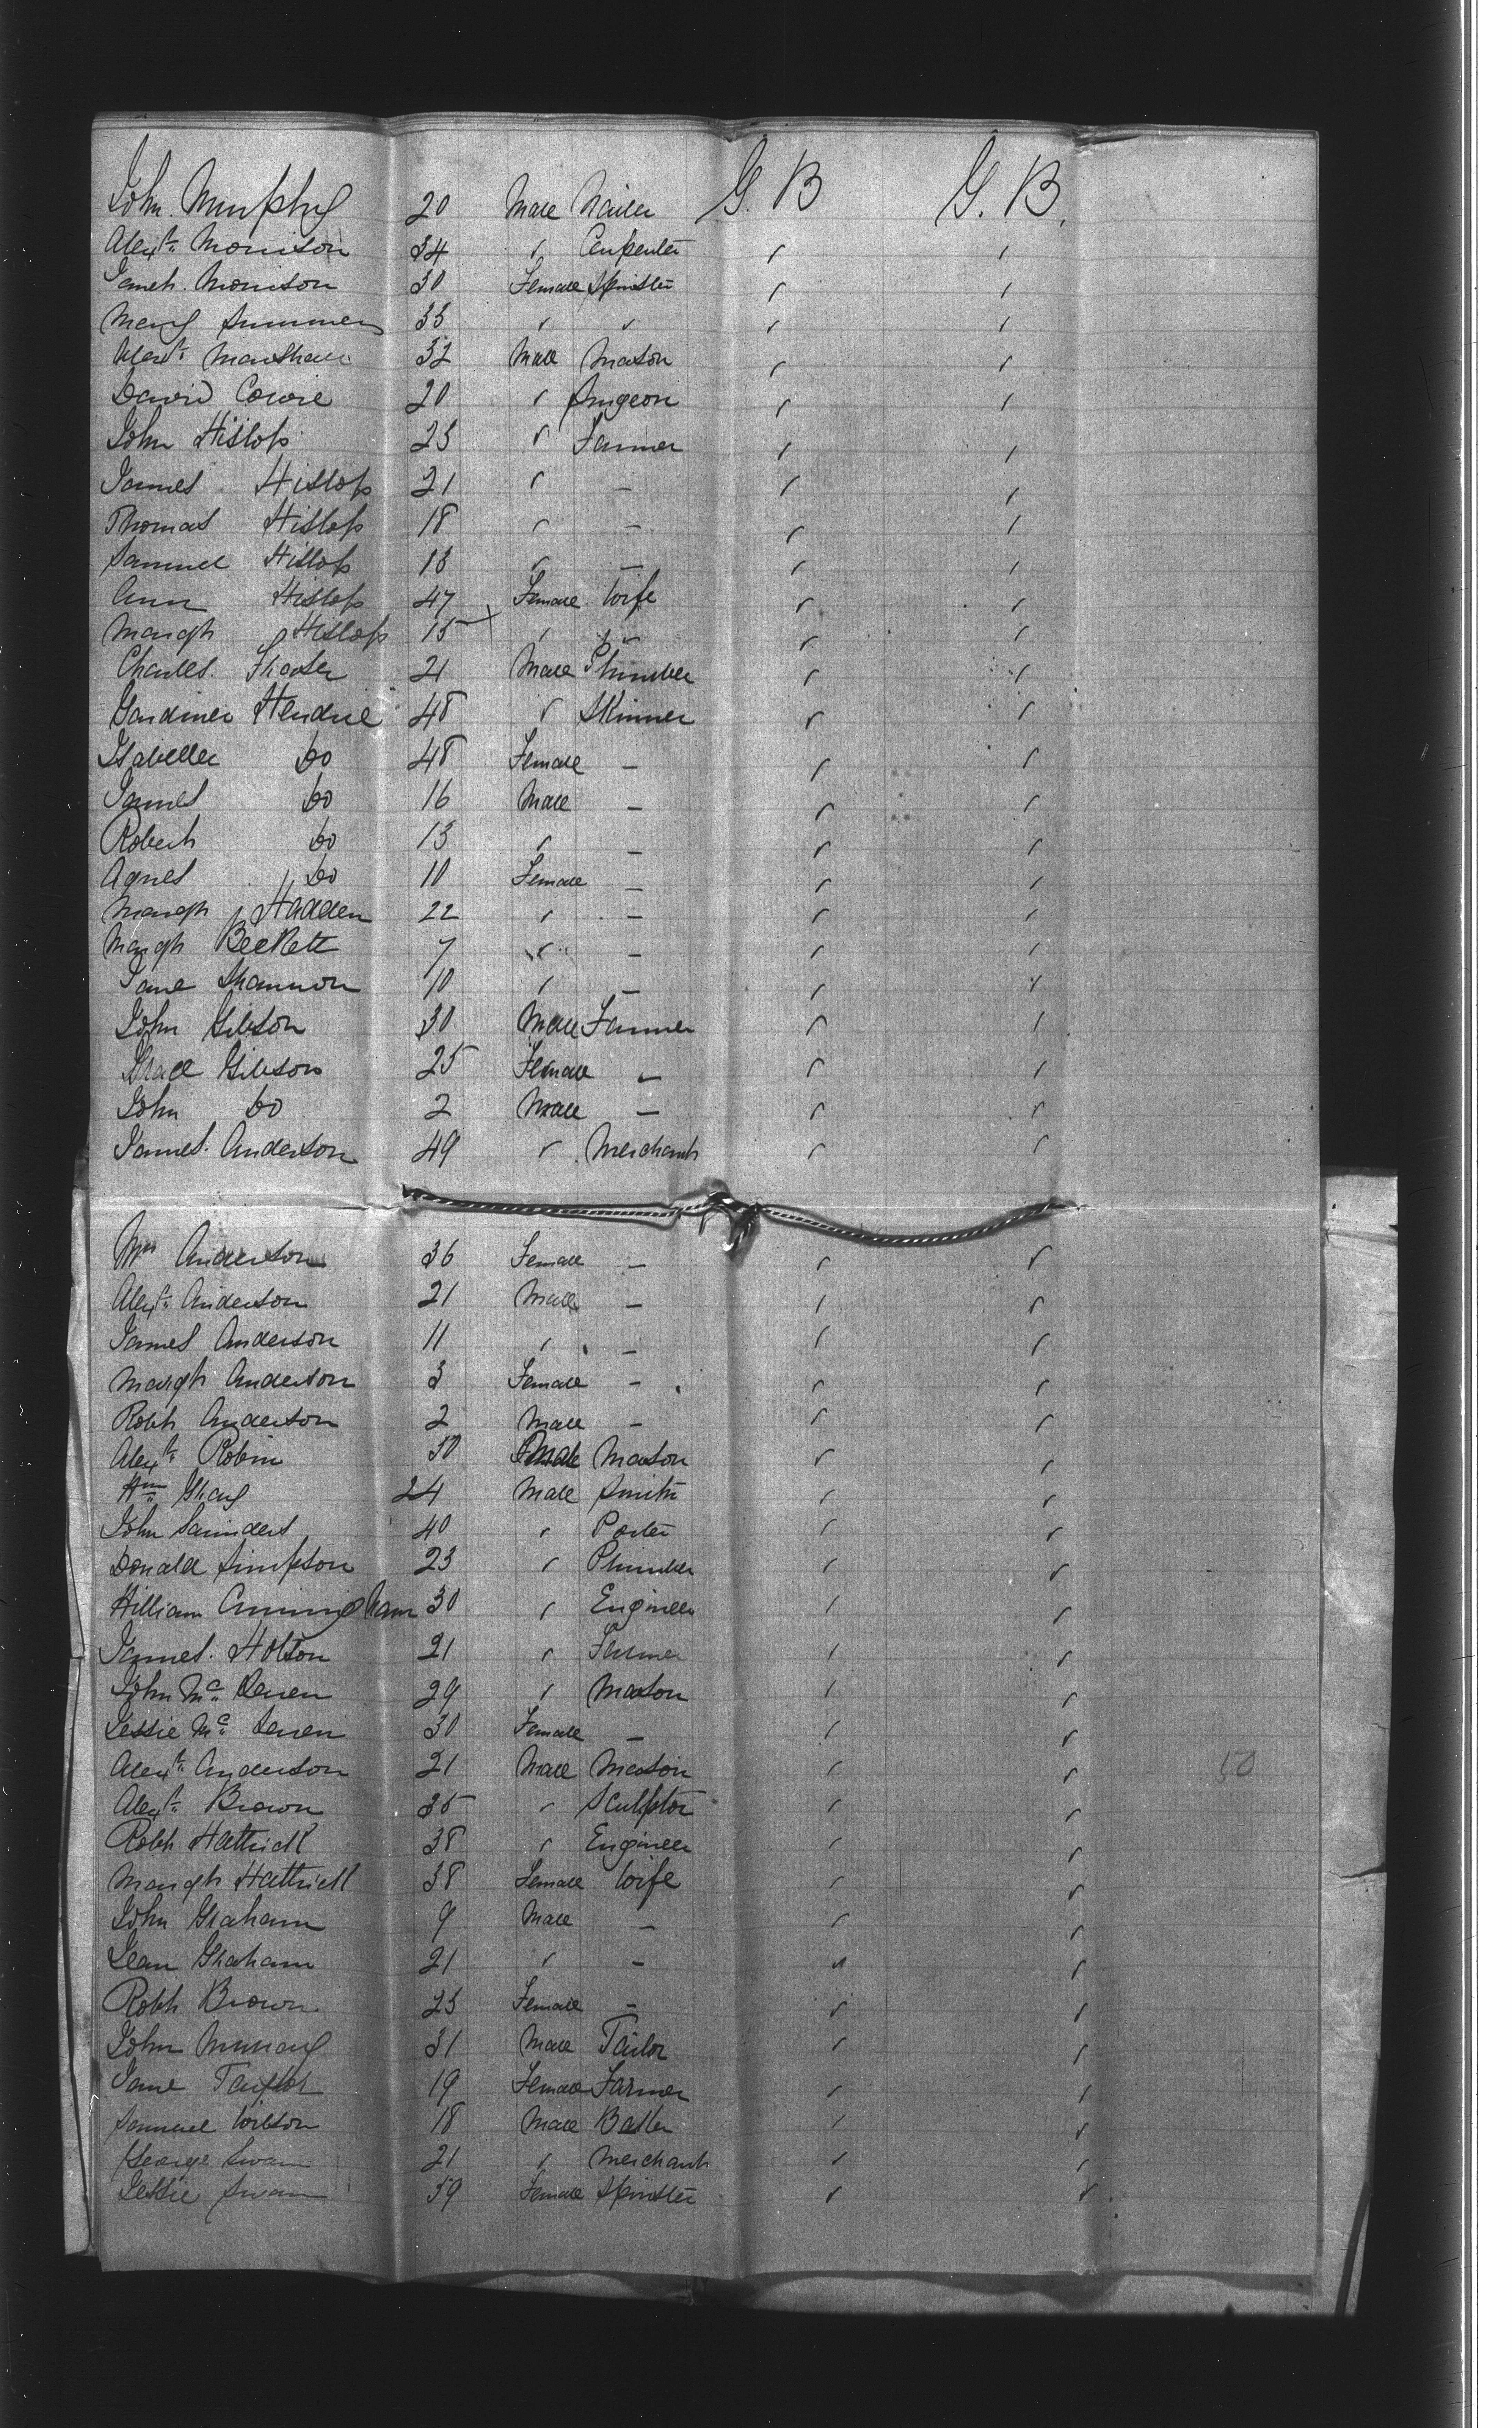 John Murphy 20 Male Nailer G. B G. B.
Alexr. Morrison 34 " Carpenter " "
Janet Morrison 30 Female Spinster " "
Mary Summers 33 " " " "
Alexr. Marshall 32 Male Mason " "
David Cowie 20 " Surgeon " "
John Hislop 23 " Farmer " "
James Hislop 21 " — " "
Thomas Hislop 18 " — " "
Samuel Hislop 13 " — " "
Ann Hislop 47 Female Wife " "
Margt Hislop 15 " " " "
Charles Fraser 21 Male Plumber " "
Gardiner Hendrie 48 " Skinner " "
Isabella Do 48 Female — " "
James Do 16 Male — " "
Robert Do 13 " — " "
Agnes Do 10 Female — " "
Margt Hadden 22 " — " "
Margt Beckett 7 " — " "
Jane Shannon 10 " — " "
John Gibson 30 Male Farmer " "
Grace Gibson 25 Female — " "
John Do 2 Male — " "
James Anderson 49 " Merchant " "
Mrs Anderson 36 Female — " "
Alexr. Anderson 21 Male — " "
James Anderson 11 " — " "
Margt Anderson 3 Female — " "
Robt Anderson 2 Male — " "
Alexr. Robin 50 Male Mason " "
Wm Gray 24 Male Smith " "
John Saunders 40 " Porter " "
Donald Simpson 23 " Plumber " "
William Cunningham 30 " Engineer " "
James Hotson 21 " Farmer " "
John Mc 29 " Mason " "
Jessie Mc 30 Female — " "
Alexr. Anderson 21 Male Mason " " 50
Alexr. Brown 35 " Sculptor " "
Robt Hattrick 38 " Engineer " "
Margt Hattrick 38 Female Wife " "
John Graham 9 Male — " "
Jean Graham 21 " — " "
Robt Brown 23 Female — " "
John Murray 31 Male Tailor " "
Jane Taylor 19 Female Farmer " "
Samuel Wilson 18 Male " "
George Swan 21 " Merchant " "
Jessie Swan 59 Female Spinster " "